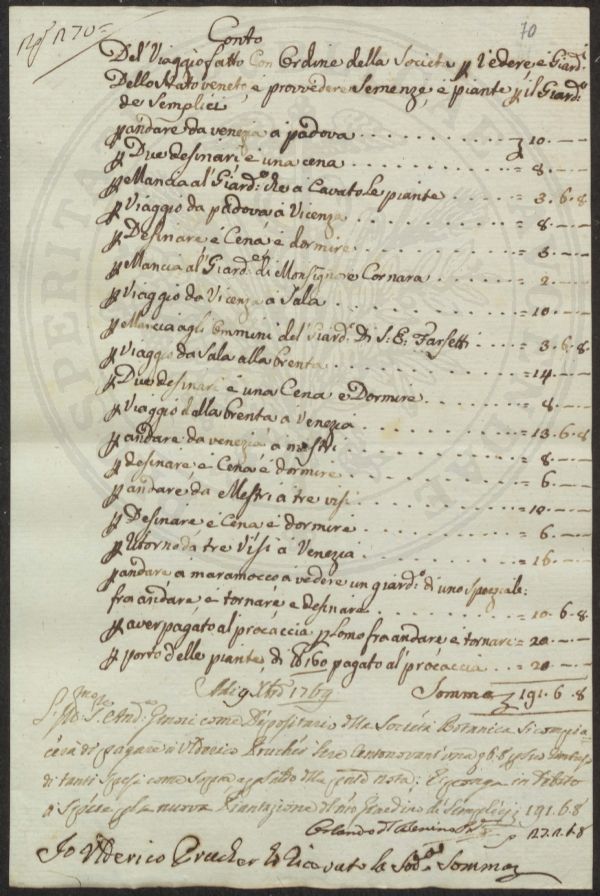 70
Conto
Del Viaggio fatto Con Ordine della Società p Vedere e Giard:
Dello Stato veneto, e provvedere Semenze, e piante p il Giard:o
de Semplici
p andare da venezia a padova = 10. — —
p Due desinari e una cena = 8. — —
p Mancia al Giard:o che a Cavato le piante = 3. 6. 8
p Viaggio da padova a Vicenza = 8. — —
p Desinare e Cena e dormire = 3. — —
p Mancia al Giard: di Monsignore Cornara = 2. — —
p Viaggio da Vicenza a Sala = 10. — —
p Mancia agli Ommini del Giard: di S. E. Farsetti = 3. 6. 8
p Viaggio da Sala alla brenta = 14. — —
p Due desinari e una Cena e Dormire = 8. — —
p Viaggio dalla brenta a Venezia = 13. 6. 8
p andare da venezia a mestri = 8. — —
p desinare e Cena e dormire = 6. — —
p andare da Mestri a tre visi = 10. — —
p Desinare e Cena e dormire = 6. — —
p Ritorno da tre Visi a Venezia = 16. — —
p andare a maramocco a vedere un giard:o di uno speziale:
fra andare e tornare e desinare = 10. 6. 8
p aver pagato al procaccia p Lomo fra andare e tornare = 20. — —
p porto delle piante di 160 pagato al procaccia = 20 — —
Adi 9 Xbre 1769 Somma 191. 6. 8
come Depositario della Società Botanica si compia
cerà di pagare a Ulderico Prucher Lire Centonovant'una 6. 8
di tante spese come sopra
nuova Piantazione Giardino de Semplici 191. 6. 8
Io Ulderico Prucher Ho Ricevuto la Sod:a Somma